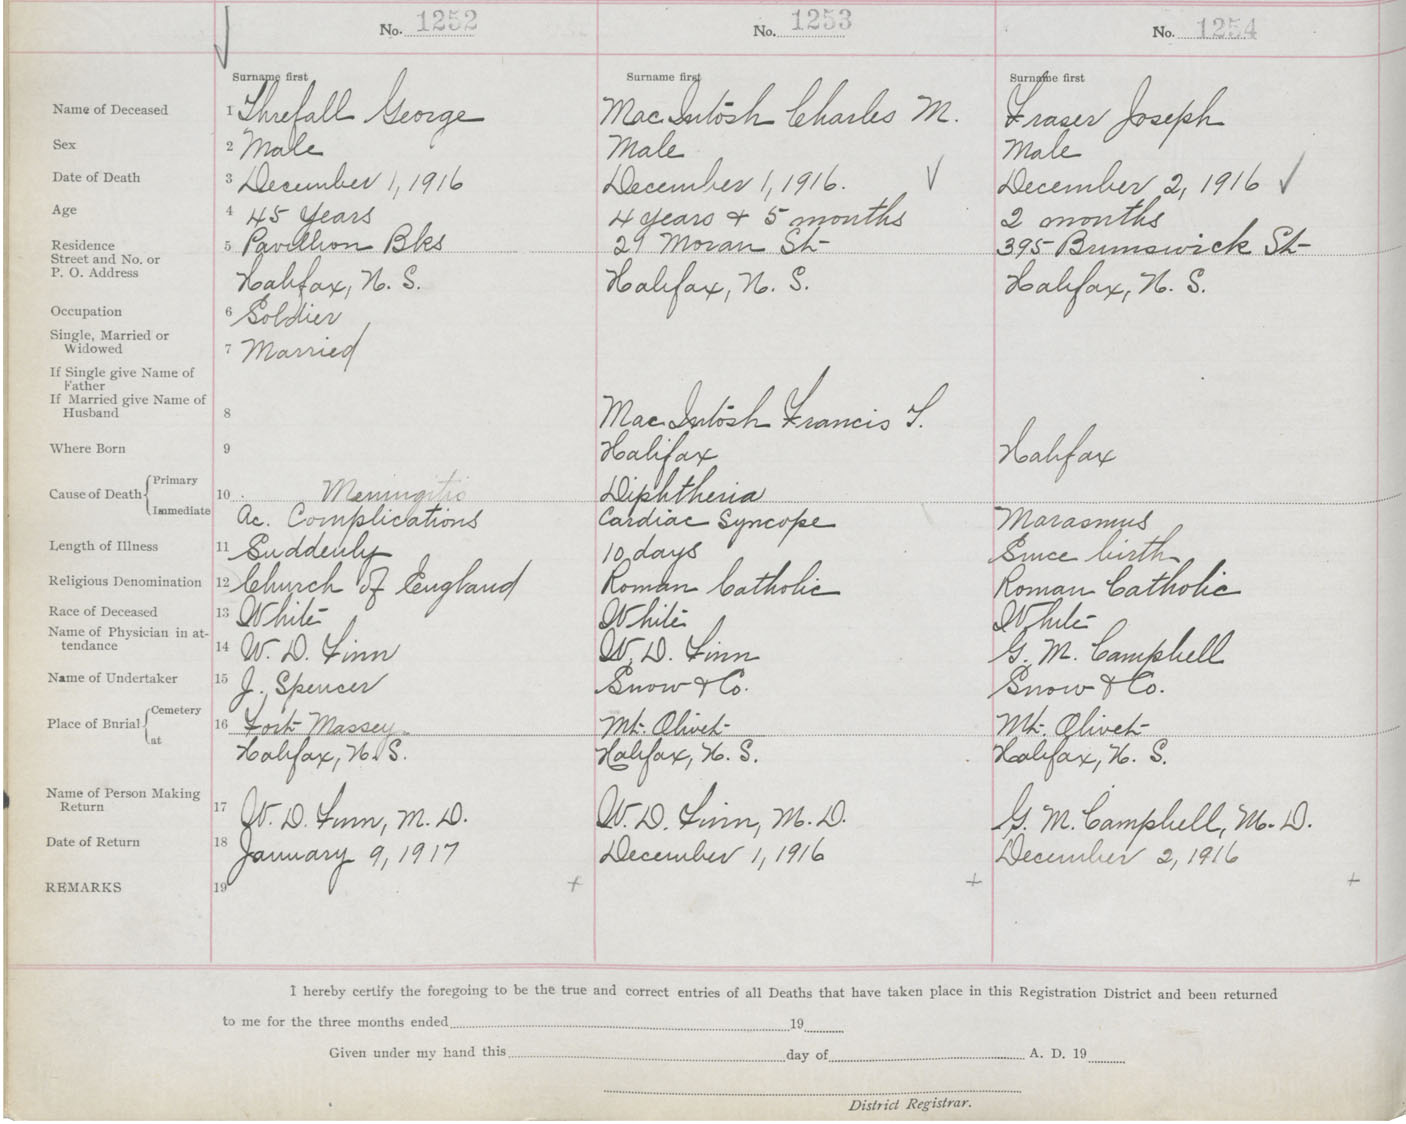 No. 1252 No. 1253 No. 1254
Surname first Surname first Surname first
Name of Deceased 1 Threfall George MacIntosh Charles M. Fraser Joseph
Sex 2 Male Male Male
Date of Death 3 December 1, 1916 December 1, 1916. December 2, 1916
Age 4 45 Years 4 years + 5 months 2 months
Residence 5 Pavillion Bks 29 Moran St 395 Brunswick St
Street and No. or
P. O. Address Halifax, N. S. Halifax, N. S. Halifax, N. S.
Occupation 6 Soldier
Single, Married or
Widowed 7 Married
If Single give Name of
Father
If Married give Name of
Husband 8 MacIntosh Francis T.
Where Born 9 Halifax Halifax
Cause of Death Primary 10 Meningitis Diphtheria
Immediate Ac. Complications Cardiac Syncope Marasmus
Length of Illness 11 Suddenly 10 days Since birth
Religious Denomination 12 Church of England Roman Catholic Roman Catholic
Race of Deceased 13 White White White
Name of Physician in at-
tendance 14 W. D. Finn W. D. Finn G. M. Campbell
Name of Undertaker 15 J. Spencer Snow & Co. Snow & Co.
Place of Burial Cemetery 16 Fort Massey Mt. Olivet Mt. Olivet
at Halifax, N. S. Halifax, N. S. Halifax, N. S.
Name of Person Making
Return 17 W. D. Finn, M. D. W. D. Finn, M. D. G. M. Campbell, M. D.
Date of Return 18 January 9, 1917 December 1, 1916 December 2, 1916
REMARKS 19 + + +
I hereby certify the foregoing to be the true and correct entries of all Deaths that have taken place in this Registration District and been returned
to me for the three months ended 19
Given under my hand this day of A. D. 19
District Registrar.